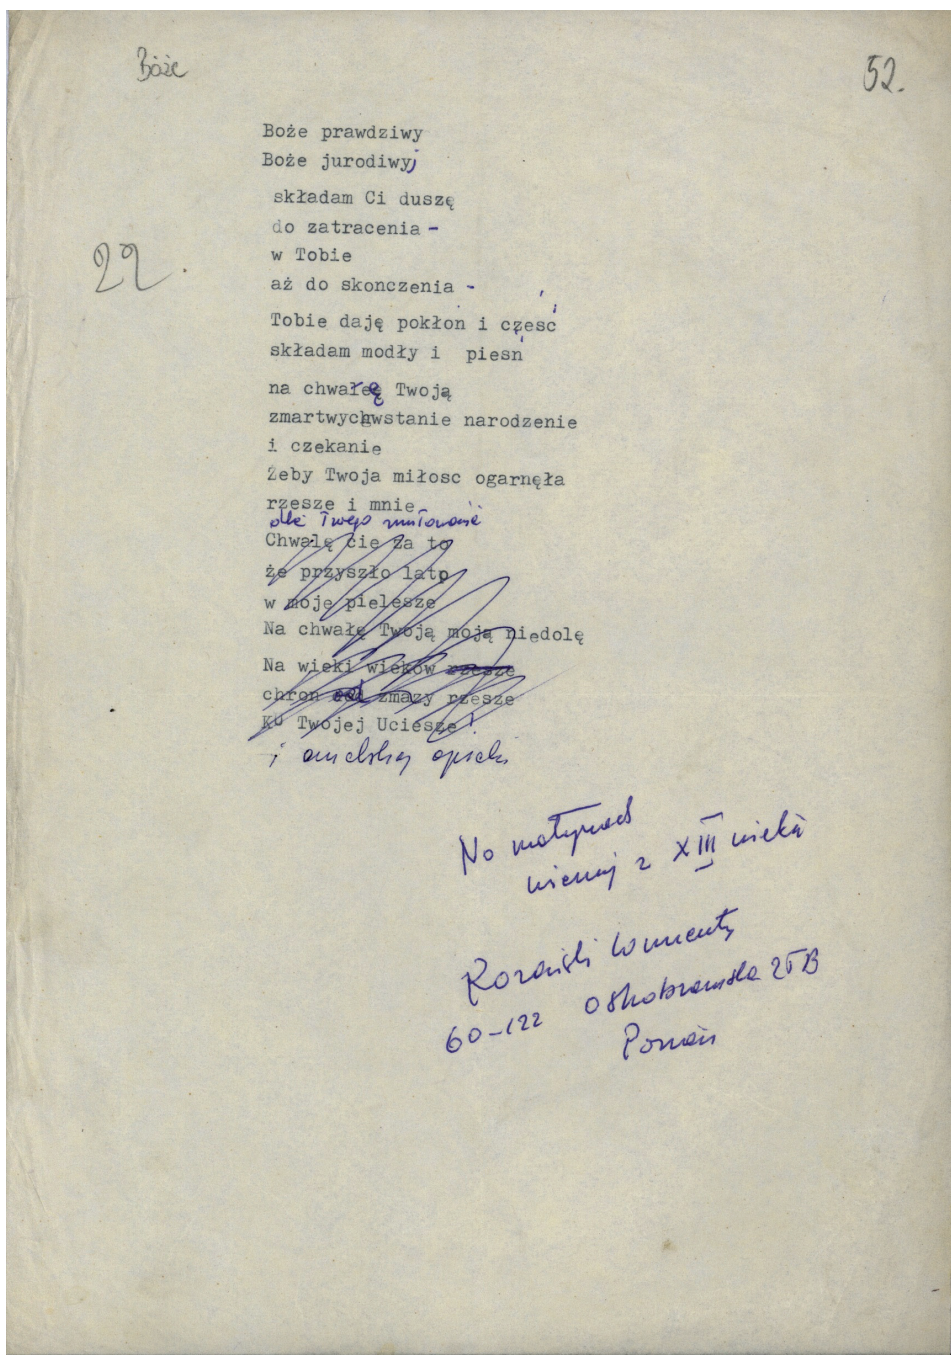 Boże
52.
Boże prawdziwy
Boże jurodiwyj
składam Ci duszę
do zatracenia -
w Tobie
22.
aż do skonczenia -
Tobie daję pokłon i cześć
składam modły i pieśn
na chwałę Twoją
zmartwychwstanie narodzenie
i czekanie
Żeby Twoja miłosc ogarnęła
rzesze i mnie
dla Twego
Chwalę cie za to
że przyszło lato
w moje pielesze
Na chwałę Twoją moją niedolę
Na wieki wieków rzesze
chron od zmazy rzesze
Ku Twojej Uciesze!
i
Na motywach
z XIII wieku
60-122